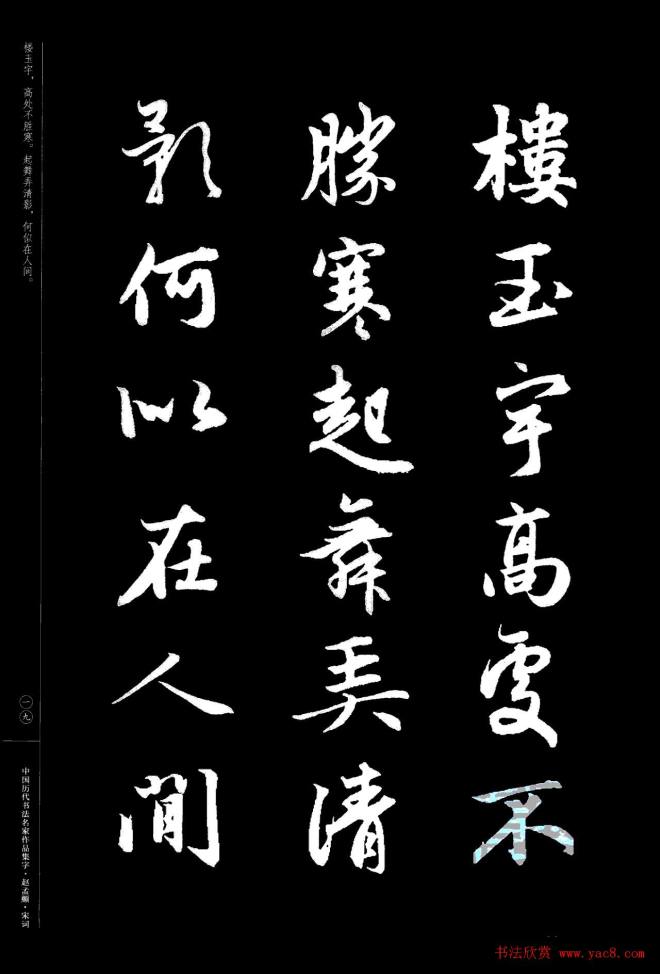 樓玉宇高處不
勝寒起舞弄清
影何似在人間
楼玉宇，高处不胜寒。起舞弄清影，何似在人间。
一九
中国历代书法名家作品集字·赵孟頫·宋词
书法欣赏 www.yac8.com